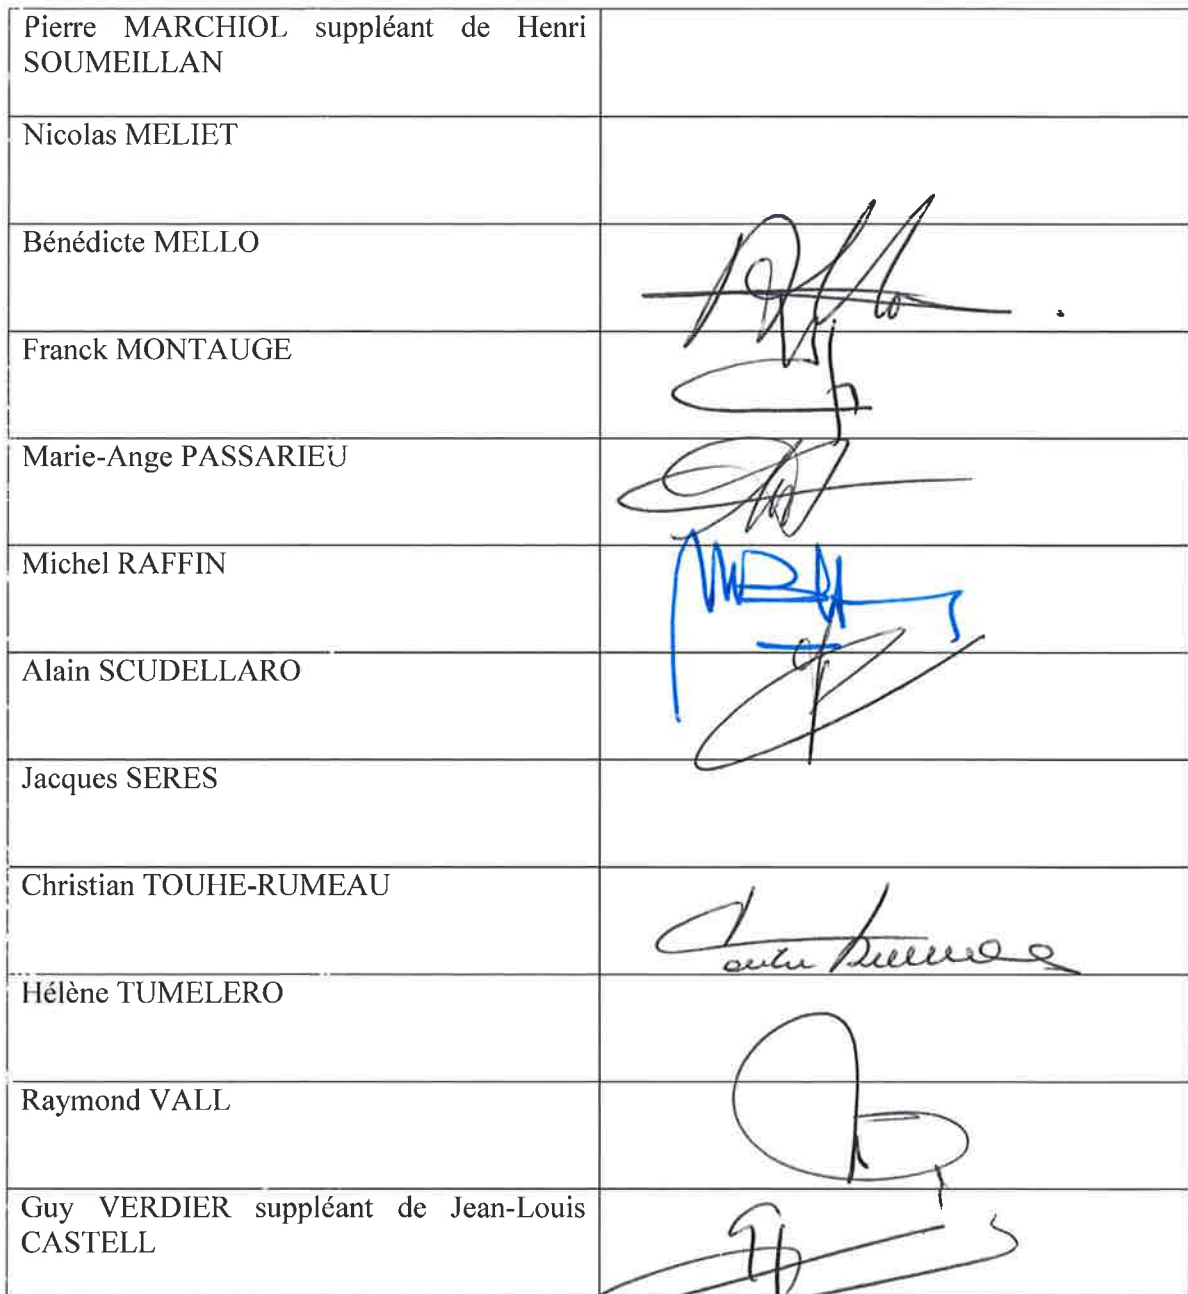 Pierre MARCHIOL suppléant de Henri
SOUMEILLAN
Nicolas MELIET
Bénédicte MELLO
Franck MONTAUGE
Marie-Ange PASSARIEU
Michel RAFFIN
Alain SCUDELLARO
Jacques SERES
Christian TOUHE-RUMEAU
Hélène TUMELERO
Raymond VALL
Guy VERDIER suppléant de Jean-Louis
CASTELL